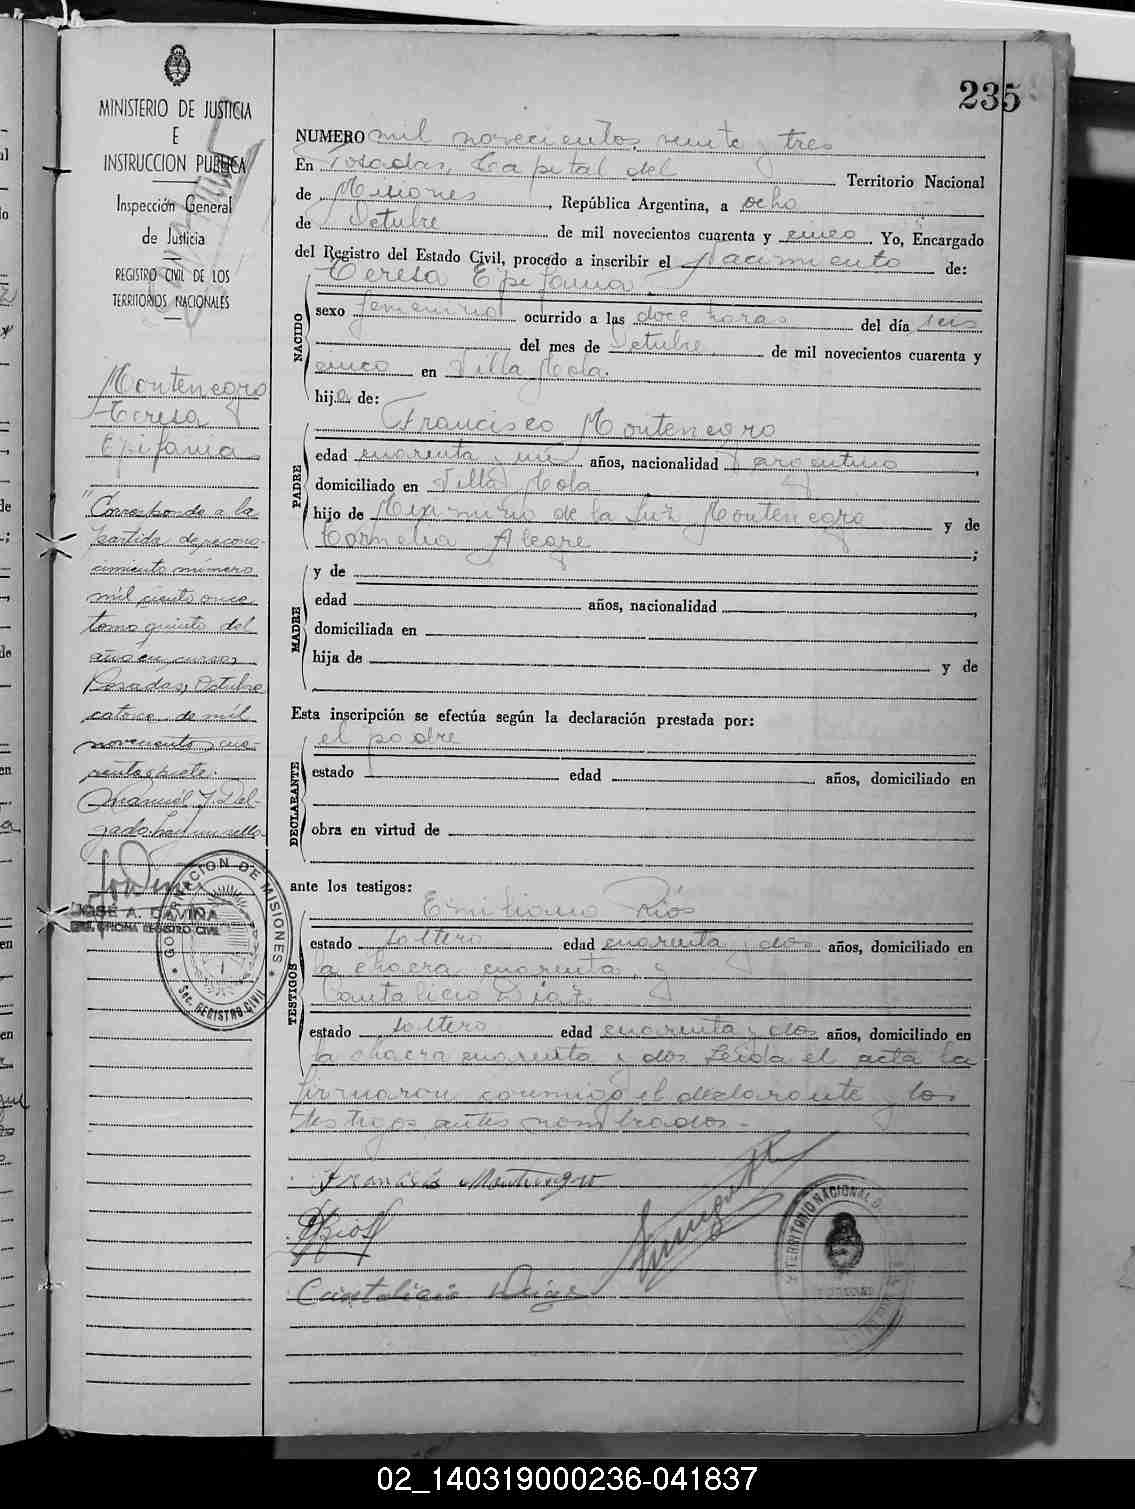 235
MINISTERIO DE JUSTICIA
E
INSTRUCCION PUBLICA
Inspección General
de Justicia
REGISTRO CIVIL DE LOS
TERRITORIOS NACIONALES
Montenegro
Teresa
Epifania
"Corresponde a la
Partida de recono-
cimiento número
mil ciento once
tomo quinto del
año en curso.
Posadas, Octubre
catorce de mil
novecientos cua-
renta y siete.
Manuel J. Del-
gado. hay un sello
JOSÉ A. DAVIÑA
OFICINA REGISTRO CIVIL
GOBERNACION DE MISIONES
Sec. REGISTRO CIVIL
NUMERO mil novecientos veinte y tres
En Posadas, Capital del Territorio Nacional
de Misiones, República Argentina, a ocho
de Octubre de mil novecientos cuarenta y cinco. Yo, Encargado
del Registro del Estado Civil, procedo a inscribir el Nacimiento de:
NACIDO
Teresa Epifania
sexo femenino ocurrido a las doce horas del día seis
del mes de Octubre de mil novecientos cuarenta y
cinco en Villa Mola.
hija de:
PADRE
Francisco Montenegro
edad cuarenta y un años, nacionalidad argentino,
domiciliado en Villa Mola
hijo de Maximino de la Luz Montenegro y de
Cornelia Alegre;
MADRE
y de
edad años, nacionalidad,
domiciliada en
hija de y de
Esta inscripción se efectúa según la declaración prestada por:
DECLARANTE
el padre
estado edad años, domiciliado en
obra en virtud de
ante los testigos:
TESTIGOS
Emiliano Ríos
estado soltero edad cuarenta y dos años, domiciliado en
la chacra cuarenta y
Cantalicio Diaz
estado soltero edad cuarenta y dos años, domiciliado en
la chacra cuarenta y dos Leida el acta la
firmaron conmigo el declarante y los
testigos antes nombrados.-
Francisco Montenegro
Rios
Cantalicio Diaz
TERRITORIO NACIONAL D
02_140319000236-041837